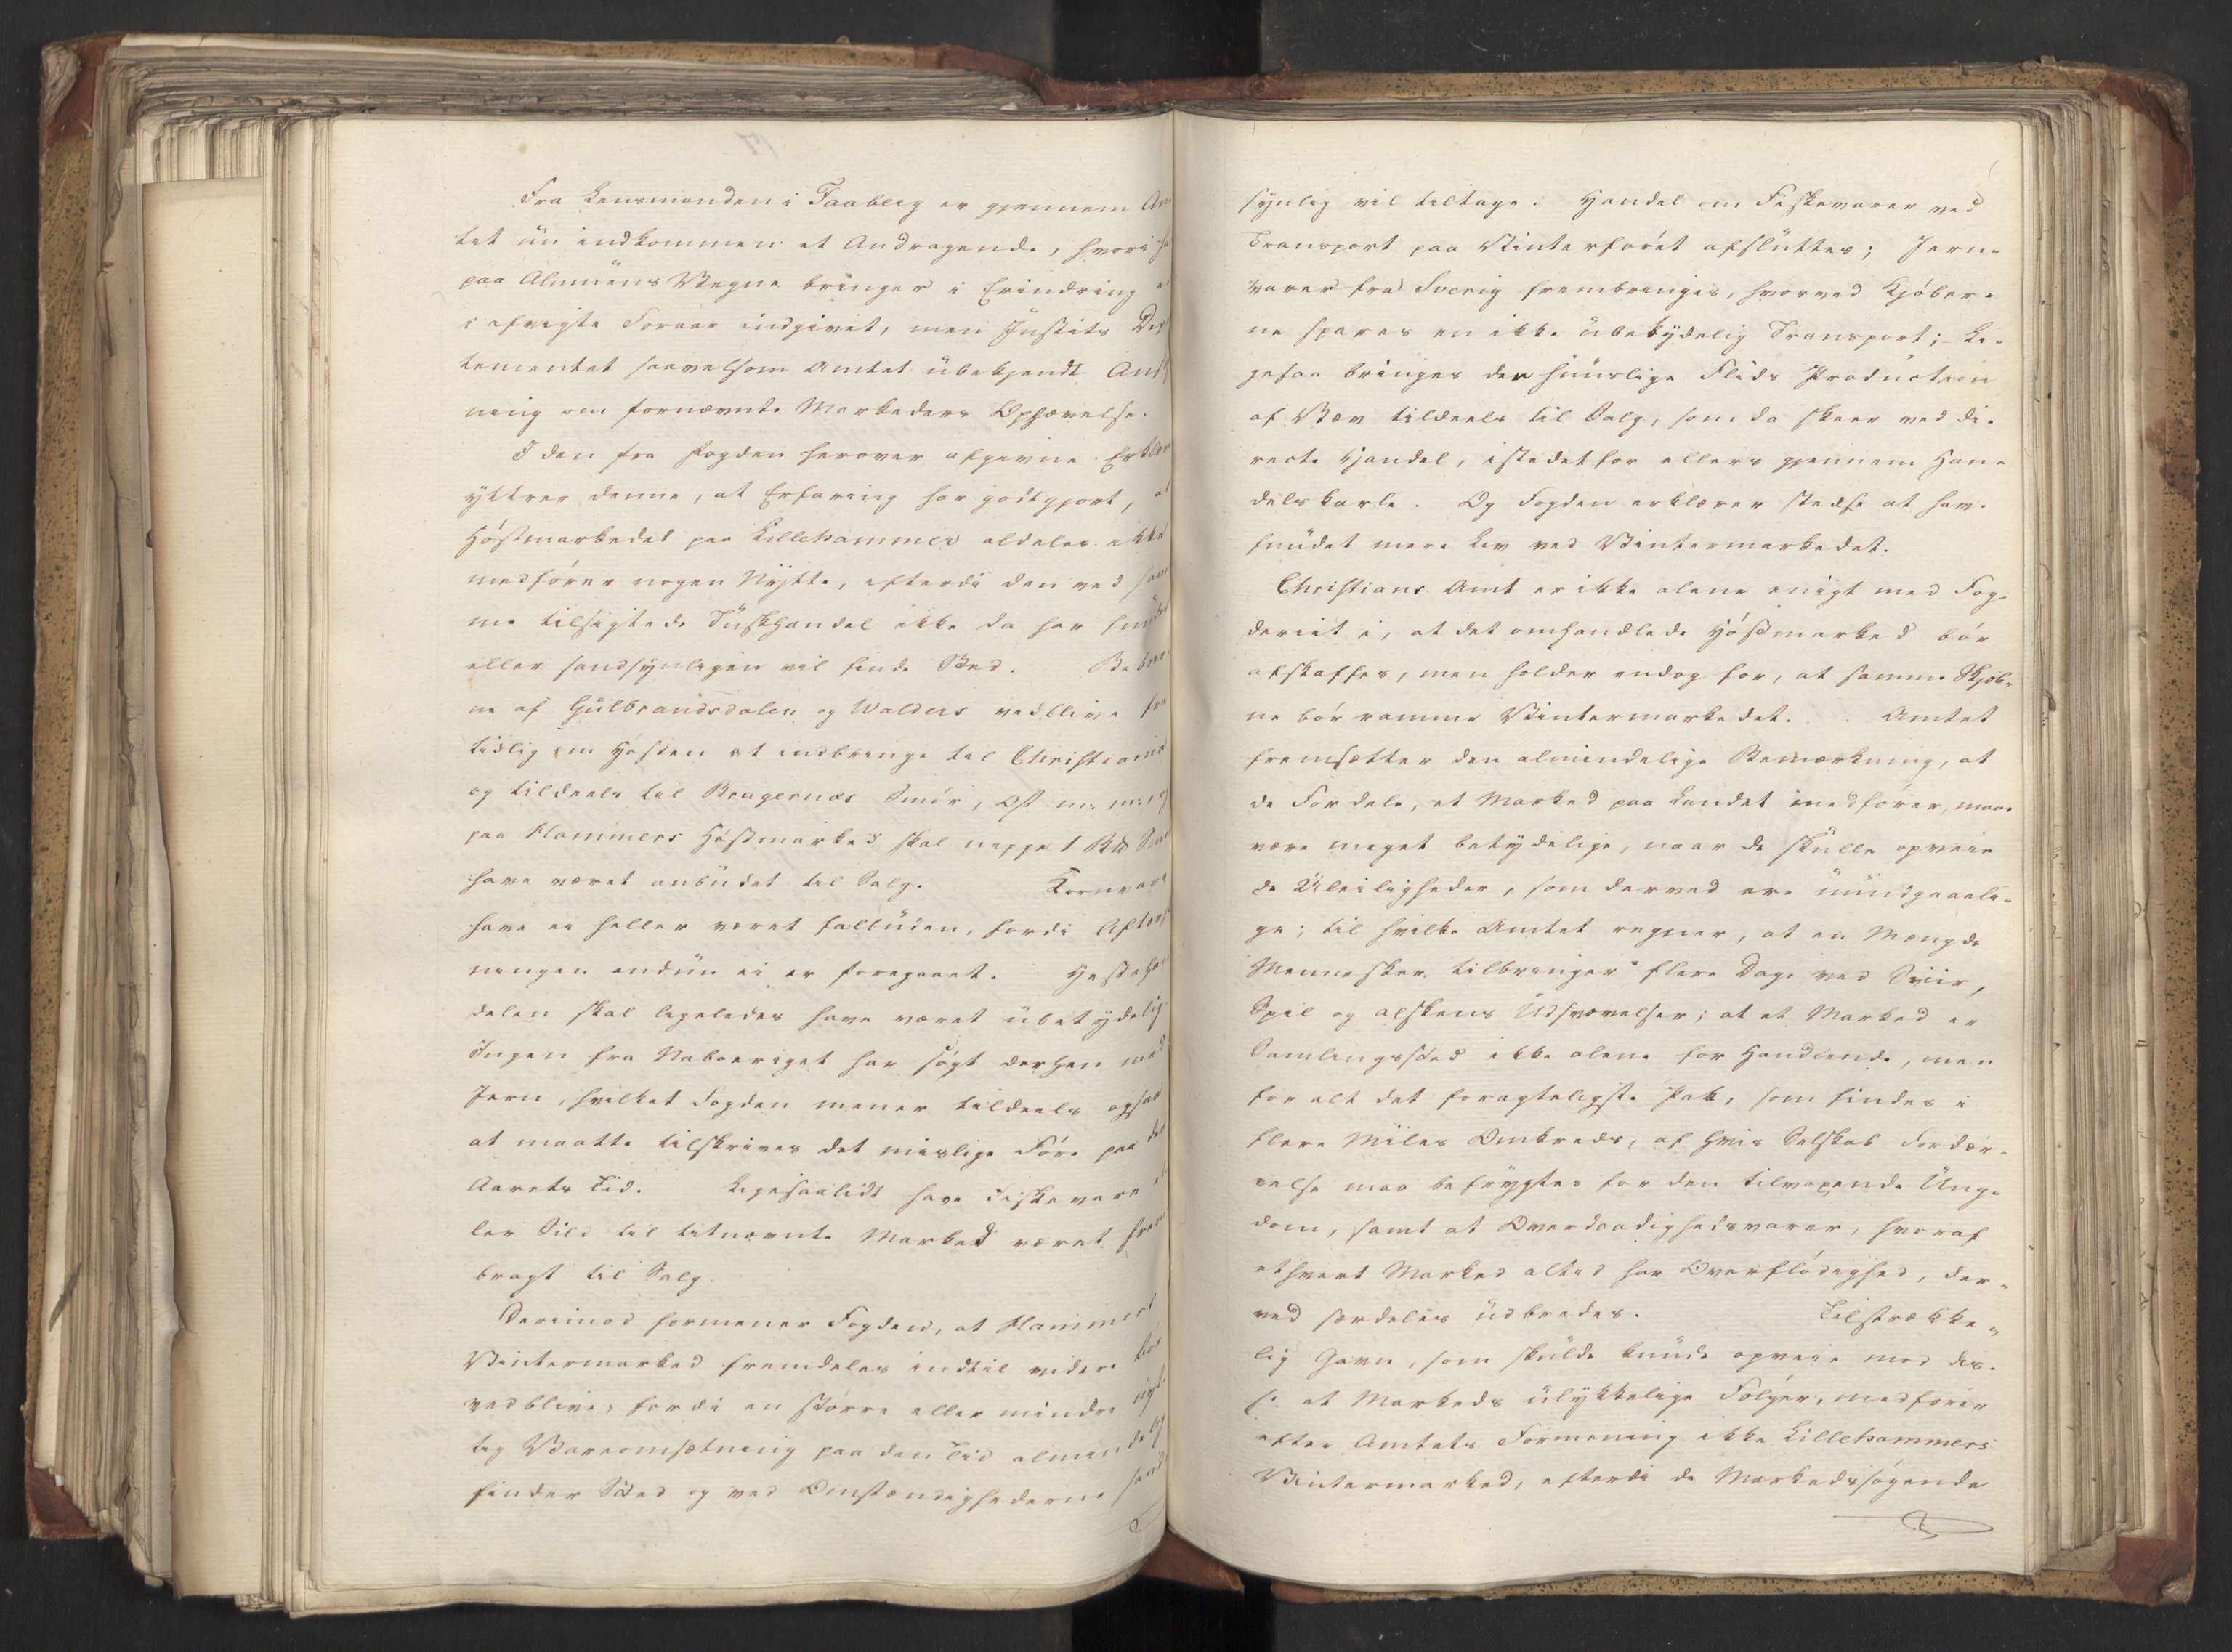 Fra Lensmanden i Faaberg er gjennem Am
tet nu indkommen et Andragende, hvori ha
paa Almuens Vegne bringer i Erindring e
i afvigte Foraar indgivet, men Justits Depa
tementet saavelsom Amtet ubekjendt Ansø
ning om fornævnte Markeders Ophævelse.
I den fra Fogden herover afgivne Erklær
yttrer denne, at Erfaring har godtgjort, at
Høstmarkedet paa Lillehammer aldeles ikke
medfører nogen Nytte, efterdi den ved sam
me tilsigtede Tuskhandel ikke da har fundet
eller sandsynligen vil finde Sted. Beboer
ne af Gulbrandsdalen og Walders vedblive fra
tidlig om Høsten at indbringe til Christiania
og tildeels til Bragernæs Smör, Ost m: m: og
paa Hammers Høstmarked skal neppe 1 B℔ Smör
have været anbudet til Salg. Kornvare
have ei heller været falbuden, fordi Aftærsk
ningen endnu ei er foregaaet. Hestehan
delen skal ligeledes have været ubetydelig
Ingen fra Naboeriget har søgt derhen med
Jern, hvilket Fogden mener tildeels ogsaa
at maatte tilskrives det mislige Føre paa det
Aarets Tid. Ligesaalidt have Fiskevare el
ler Sild til titnævnte Marked været frem
bragt til Salg.
Derimod formener Fogden, at Hammers
Vintermarked fremdeles indtil videre bør
vedblive, fordi en større eller mindre vigt
tig Vareomsætning paa den Tid almindelig
finder Sted og ved Omstændighederne sand
synlig vil tiltage. Handel om Fiskevarer ved
Transport paa Vinterføret afsluttes; Jern-
varer fra Sverig frembringes, hvorved Kjøber-
ne spares en ikke ubetydelig Transport; Li-
gesaa bringes den huuslige Flids Production
af Væv tildeels til Salg, som da skeer ved di-
recte Handel, istedetfor ellers gjennem Han-
delskarle. Og Fogden erklærer stedse at have
fundet mere Liv ved Vintermarkedet.
Christians Amt er ikke alene enigt med Fog-
deriet i, at det omhandlede Høstmarked bør
afskaffes, men holder endog for, at samme Skjæb-
ne bør ramme Vintermarkedet. Amtet
fremsætter den almindelige Bemærkning, at
de Fordele, et Marked paa Landet medfører, maae
være meget betydelige, naar de skulle opveie
de Uleiligheder, som derved ere uundgaaeli-
ge; til hvilke Amtet regner, at en Mængde
Mennesker tilbringer flere Dage ved Sviir,
Spil og alskens Udsvævelser; at et Marked er
Samlingssted ikke alene for Handlende, men
for alt det foragteligste Pak, som findes i
flere Miles Omkreds, af hvis Selskab Fordær-
velse maa befrygtes for den tilvoxende Ung-
dom, samt at Overdaadighedsvarer, hvoraf
ethvert Marked altid har Overflødighed, der-
ved særdeles udbredes. Tilstrække-
lig Gavn, som skulde kunde opveie mod dis-
se et Markeds ulykkelige Følger, medfører
efter Amtets Formening ikke Lillehammers
Vintermarked, efterdi de Markedssøgende